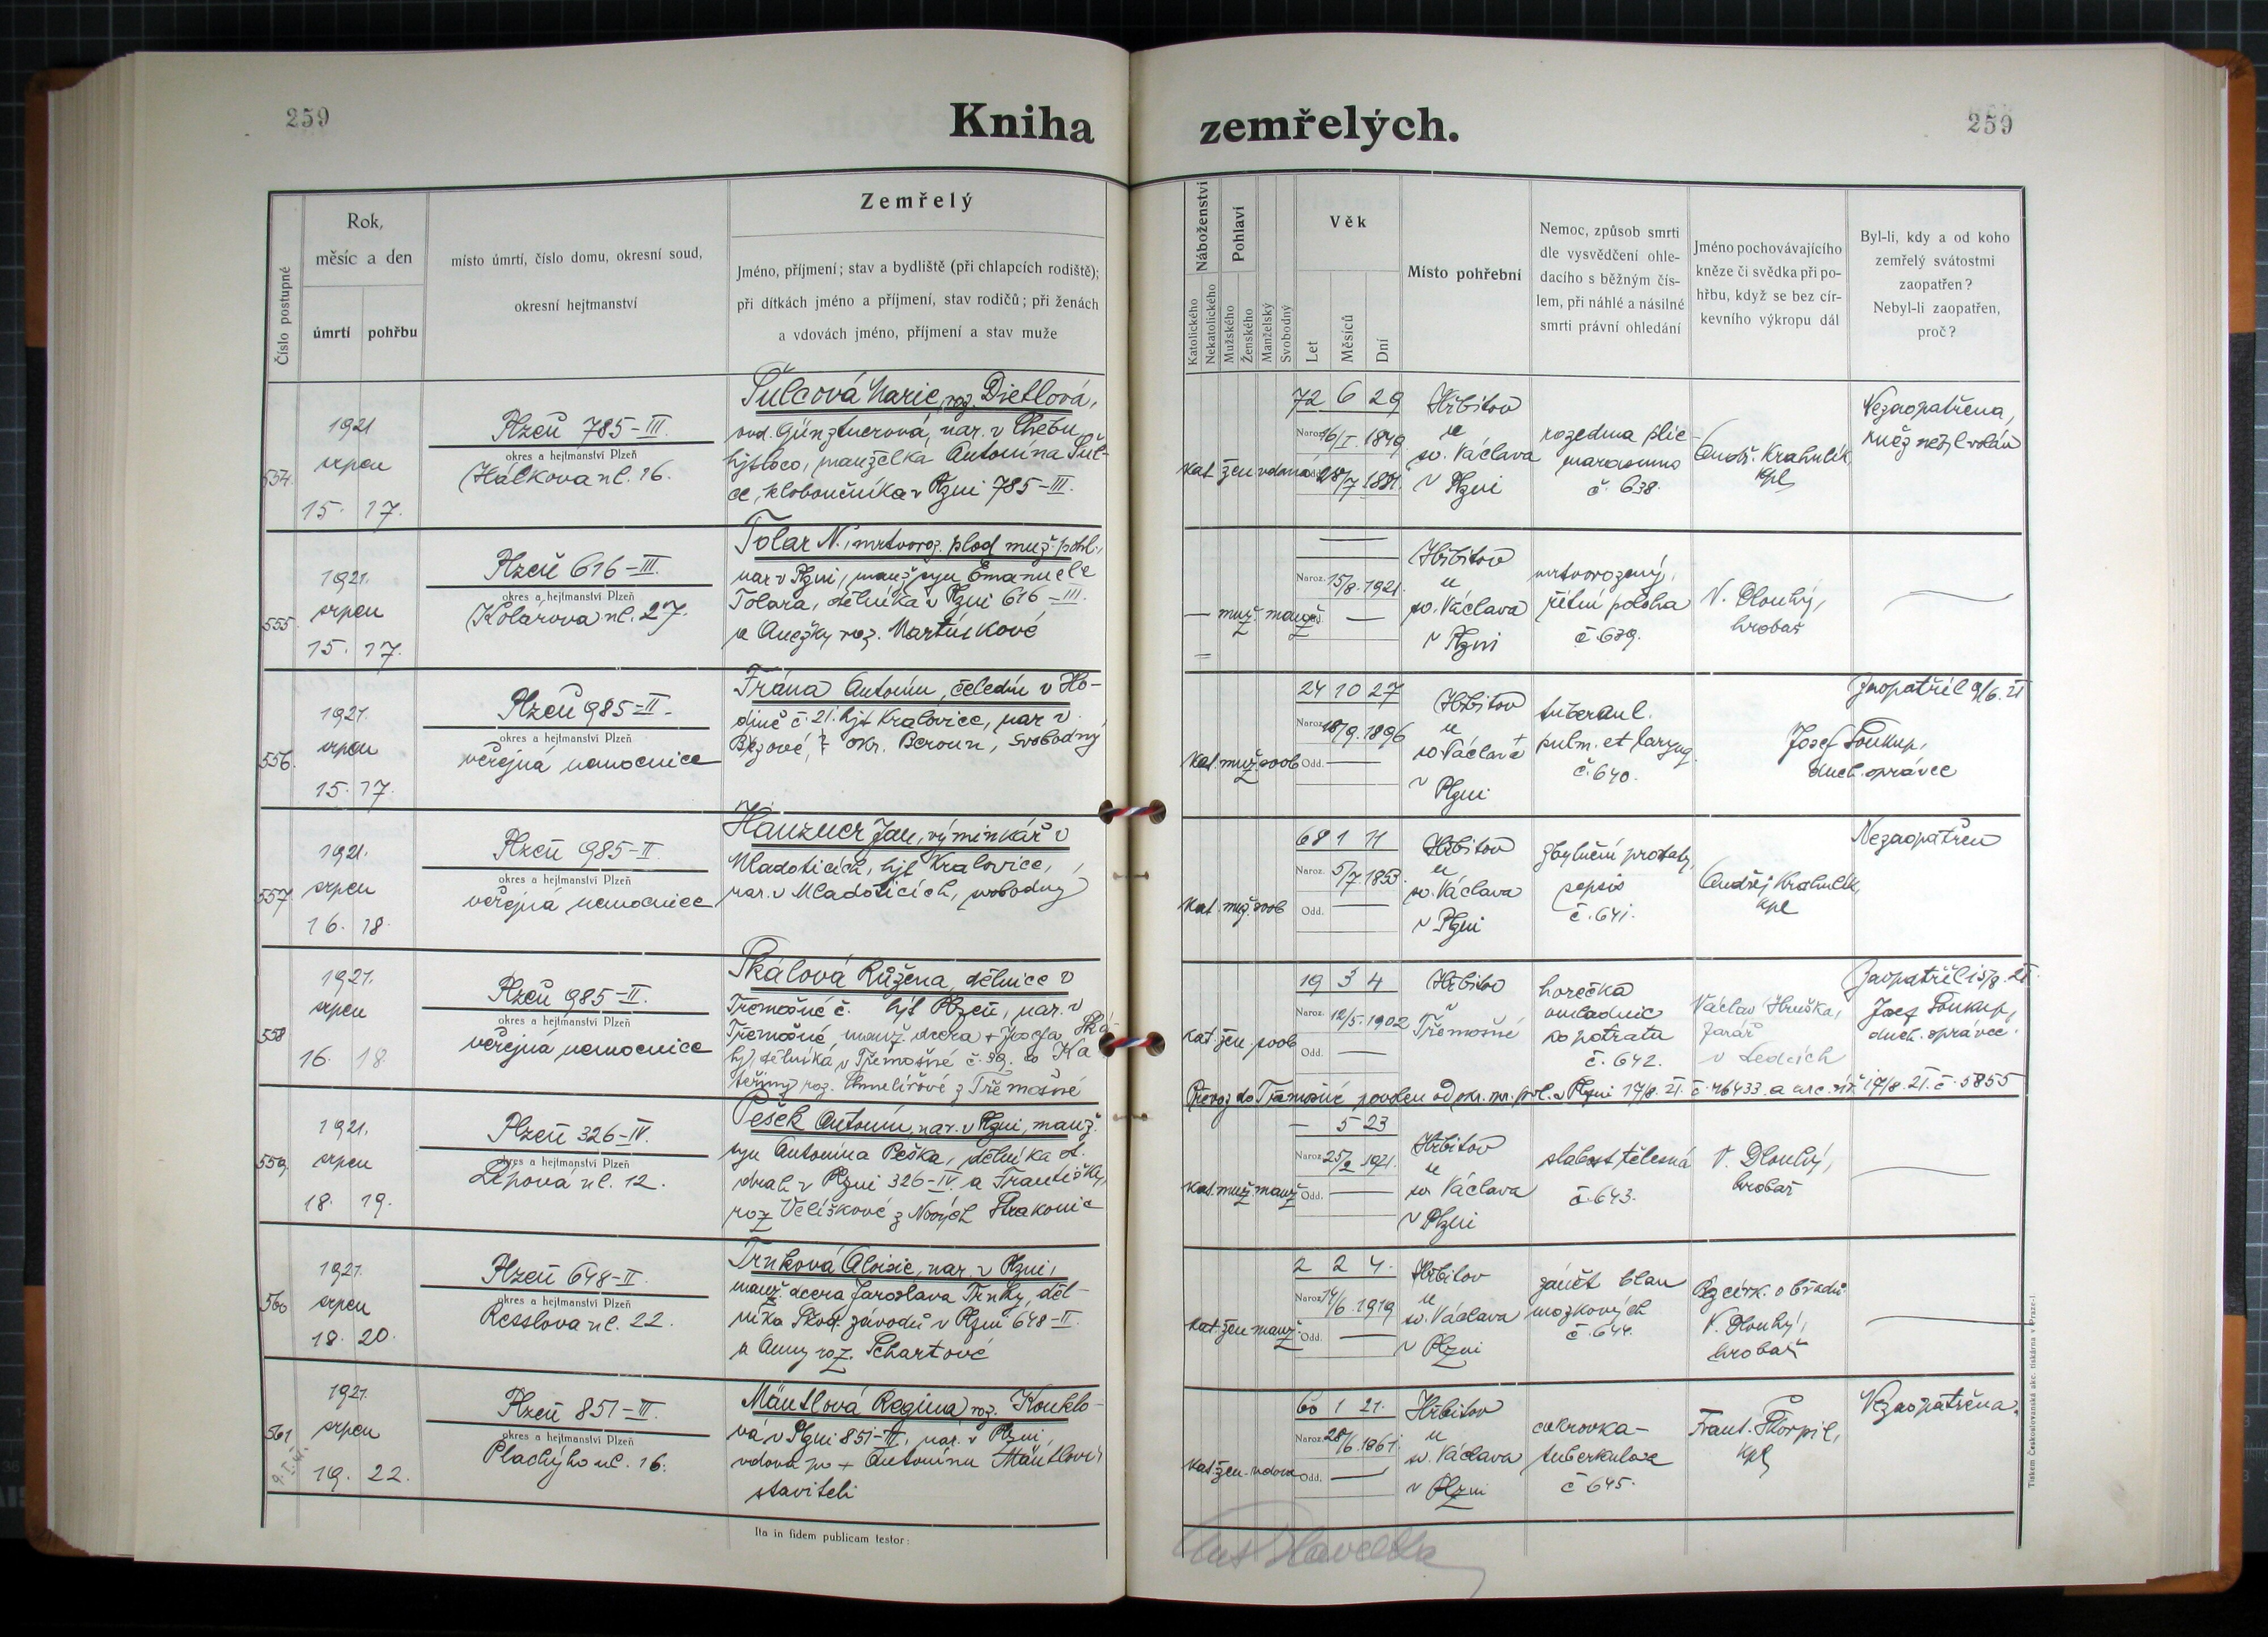 259
Kniha zemřelých.
259
Číslo postupné
Rok,
měsíc a den
úmrtí
pohřbu
místo úmrtí, číslo domu, okresní soud,
okresní hejtmanství
Zemřelý
Jméno, příjmení; stav a bydliště (při chlapcích rodiště);
při dítkách jméno a příjmení, stav rodičů; při ženách
a vdovách jméno, příjmení a stav muže
Náboženství
Katolického
Nekatolického
Pohlaví
Mužského
Ženského
Manželský
Svobodný
Věk
Let
Měsíců
Dní
Místo pohřební
Nemoc, způsob smrti
dle vysvědčení ohle-
dacího s běžným čís-
lem, při náhlé a násilné
smrti právní ohledání
Jméno pochovávajícího
kněze či svědka při po-
hřbu, když se bez cír-
kevního výkropu dál
Byl-li, kdy a od koho
zemřelý svátostmi
zaopatřen?
Nebyl-li zaopatřen,
proč?
554.
1921
srpen
15. 17.
Plzeň 785-III.
okres a hejtmanství Plzeň
Hálkova ul. 16.
Šulcová Marie, roz. Dietlová,
ovd. Günztnerová, nar. v Chebu,
hjt loco, manželka Antonína Šul-
ce, kloboučníka v Plzni 785-III.
kat. žen vdaná
72 6 29
Naroz. 16/I. 1849
28/7 1881.
Hřbitov
u
sv. Václava
v Plzni
rozedma plic-
marasmus
č. 638.
Ondř. Krahulík,
kpl
Nezaopatřena,
kněz nebyl volán
555.
1921.
srpen
15. 17.
Plzeň 616-III.
okres a hejtmanství Plzeň
Kolárova ul. 27.
Tolar N., mrtvoroz. plod muž. pohl.,
nar v Plzni, manž syn Emanuele
Tolara, dělníka v Plzni 616-III.
a Anežky roz. Martínkové
— muž. manž
Naroz. 15/8. 1921.
Hřbitov
u
sv. Václava
v Plzni
mrtvorozený,
řitní poloha
č. 639.
V. Dlouhý,
hrobař
556.
1921.
srpen
15. 17.
Plzeň 985-II.
okres a hejtmanství Plzeň
veřejná nemocnice
Frána Antonín, čeledín v Ho-
dině č. 21. hjt Kralovice, nar v
Březové, okr. Beroun, svobodný
kat. muž. svob
24 10 27
Naroz. 18/9. 1896
Odd. —
Hřbitov
u
sv. Václava
v Plzni
tubercul.
pulm. et laryng.
č. 640.
Zaopatřil 9/6. 21
Josef Soukup,
duch. správce
557.
1921.
srpen
16. 18.
Plzeň 985-II.
okres a hejtmanství Plzeň
veřejná nemocnice
Hanzner Jan, výminkář v
Mladoticích, hjt Kralovice,
nar. v Mladoticích, svobodný
kat. muž. svob
68 1 11
Naroz. 5/7. 1853.
Odd. —
Hřbitov
u
sv. Václava
v Plzni
zbytnění prostaty,
sepsis
č. 641.
Ondřej Krahulík,
kpl
Nezaopatřen
558
1921.
srpen
16. 18
Plzeň 985-II.
okres a hejtmanství Plzeň
veřejná nemocnice
Skálová Růžena, dělnice v
Třemošné č. hjt Plzeň, nar. v
Třemošné, manž. dcera + Josefa Ská-
ly, dělníka v Třemošné č. 39. a Ka
teřiny roz. Chmelířové z Třemošné
kat. žen. svob
19 3 4
Naroz. 12/5. 1902
Odd. —
Hřbitov
v
Třemošné
horečka
omladnic
po potratu
č. 642.
Václav Hruška,
farář
v Ledcích
Zaopatřil 15/8. 21.
Josef Soukup,
duch. správce.
Převoz do Třemošné povolen od okr. spr. pol. v Plzni 17/8. 21. č. 46433. a arc. vik. 17/8. 21. č. 5855
559.
1921.
srpen
18. 19.
Plzeň 326-IV.
okres a hejtmanství Plzeň
Lipová ul. 12.
Pešek Antonín, nar. v Plzni, manž.
syn Antonína Peška, dělníka st.
drah v Plzni 326-IV. a Františky,
roz Velíškové z Nových Strakonic
kat. muž. manž
— 5 23
Naroz. 25/2 1921.
Odd. —
Hřbitov
u
sv. Václava
v Plzni
slabost tělesná
č. 643.
V. Dlouhý,
hrobař
560
1921.
srpen
18. 20.
Plzeň 648-II.
okres a hejtmanství Plzeň
Resslova ul. 22.
Trnková Aloisie, nar. v Plzni,
manž. dcera Jaroslava Trnky, děl-
níka Škod. závodů v Plzni 648-II.
a Anny roz. Schartové
kat. žen manž.
2 2 4.
Naroz. 14/6. 1919
Odd. —
Hřbitov
u
sv. Václava
v Plzni
zánět blan
mozkových
č. 644.
Bez círk. obřadů
V. Dlouhý,
hrobař
561
1921.
srpen
19. 22.
Plzeň 851-III.
okres a hejtmanství Plzeň
Plachýho ul. 16.
Mäntlová Regina, roz. Kouklo-
vá v Plzni 851-III, nar. v Plzni,
vdova po + Antonínu Mäntlovi,
staviteli
kat. žen. vdova
60 1 21.
Naroz. 28/6. 1861.
Odd. —
Hřbitov
u
sv. Václava
v Plzni
cukrovka-
tuberkulosa
č 645.
Frant. Škorpil,
kpl
Nezaopatřena.
Ita in fidem publicam testor:
Tiskem Československá akc. tiskárna v Praze-I